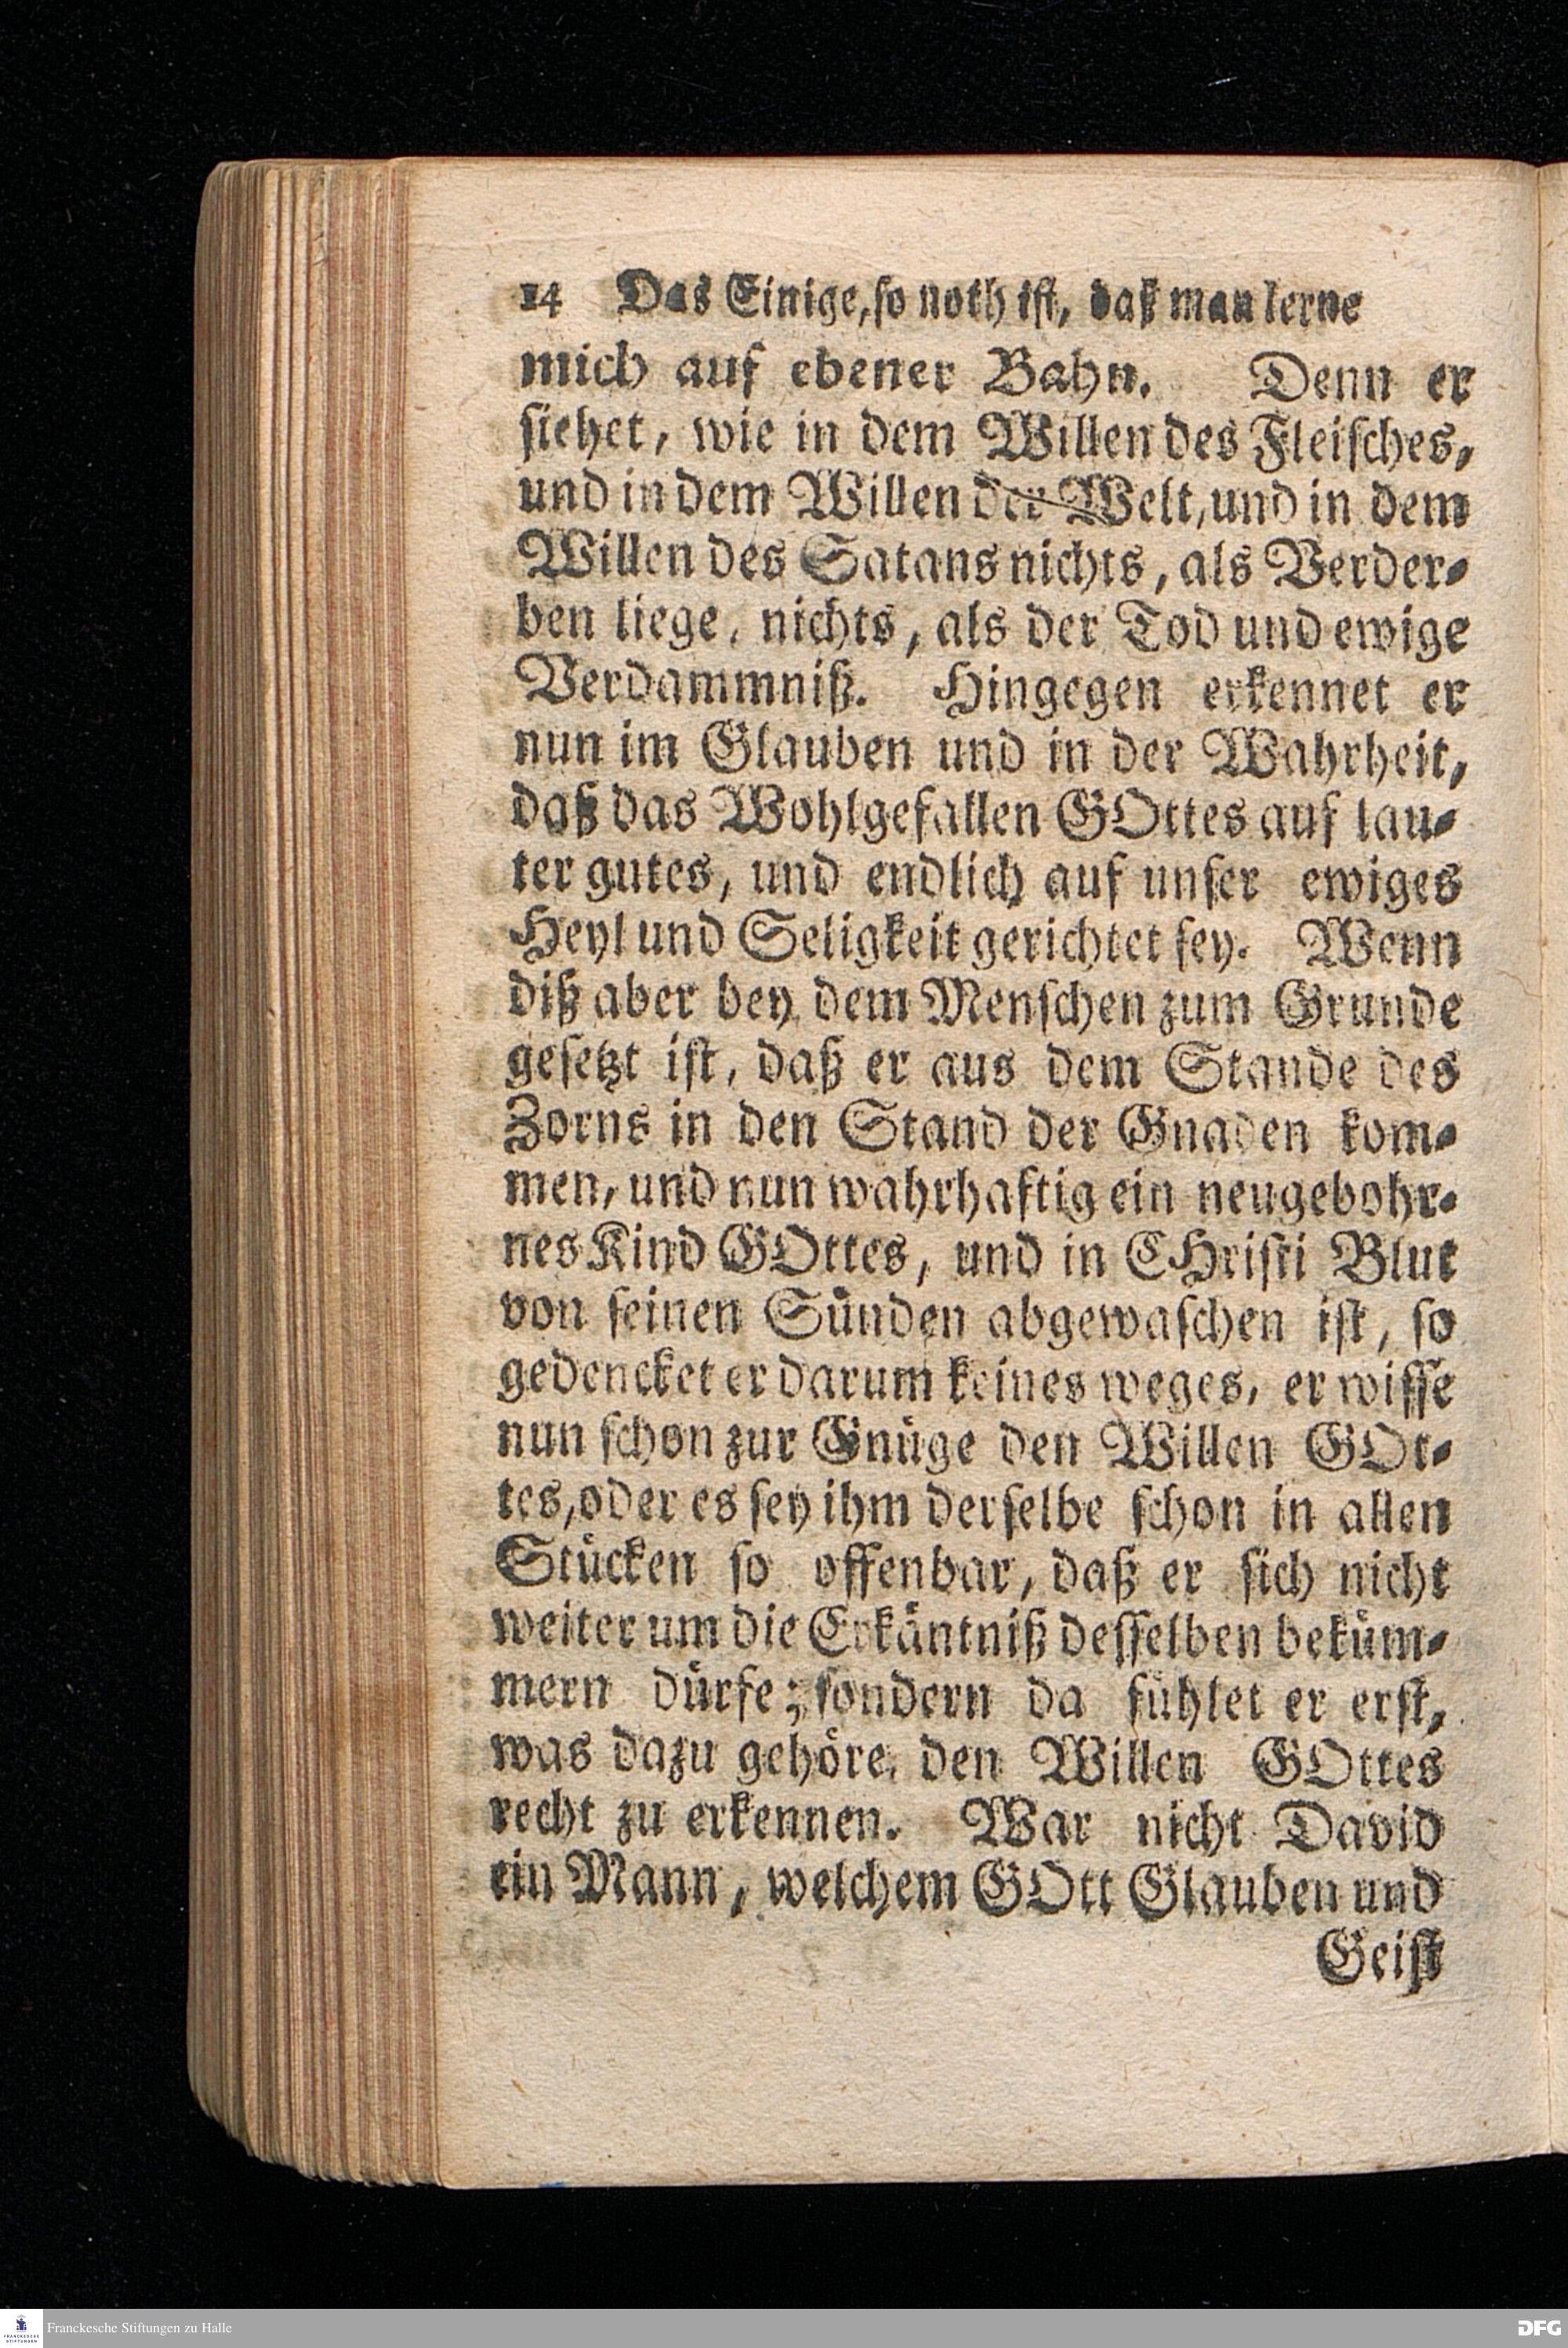 14 Das Einige, so noth ist, daß man lerne
mich auf ebener Bahn. Denn er
siehet, wie in dem Willen des Fleisches,
und in dem Willen der Welt, und in dem
Willen des Satans nichts, als Verder-
ben liege, nichts, als der Tod und ewige
Verdammniß. Hingegen erkennet er
nun im Glauben und in der Wahrheit,
daß das Wohlgefallen GOttes auf lau-
ter gutes, und endlich auf unser ewiges
Heyl und Seligkeit gerichtet sey. Wenn
diß aber bey dem Menschen zum Grunde
gesetzt ist, daß er aus dem Stande des
Zorns in den Stand der Gnaden kom-
men, und nun wahrhaftig ein neugebohr-
nes Kind GOttes, und in CHristi Blut
von seinen Sünden abgewaschen ist, so
gedencket er darum keines weges, er wisse
nun schon zur Gnüge den Willen GOt-
tes, oder es sey ihm derselbe schon in allen
Stücken so offenbar, daß er sich nicht
weiter um die Erkäntniß desselben beküm-
mern dürfe; sondern da fühlet er erst,
was dazu gehöre, den Willen GOttes
recht zu erkennen. War nicht David
ein Mann, welchem GOtt Glauben und
Geist
FRANCKESCHE STIFTUNGEN
Franckesche Stiftungen zu Halle
DFG